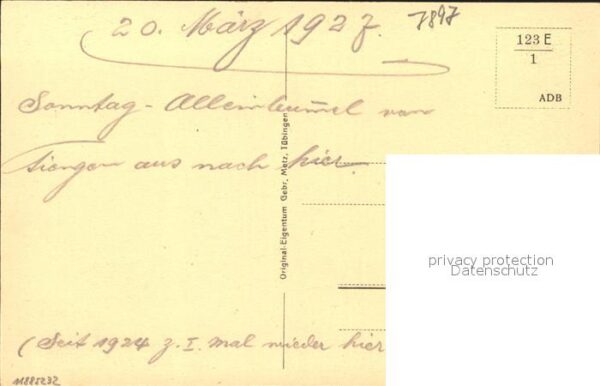 20. März 1927.
7897
123 E
1
ADB
Sonntag - Alleinbummel von
Tiengen aus nach hier.
Original-Eigentum Gebr. Metz, Tübingen
privacy protection
Datenschutz
(Seit 1924 z. I. mal wieder hier
11885232